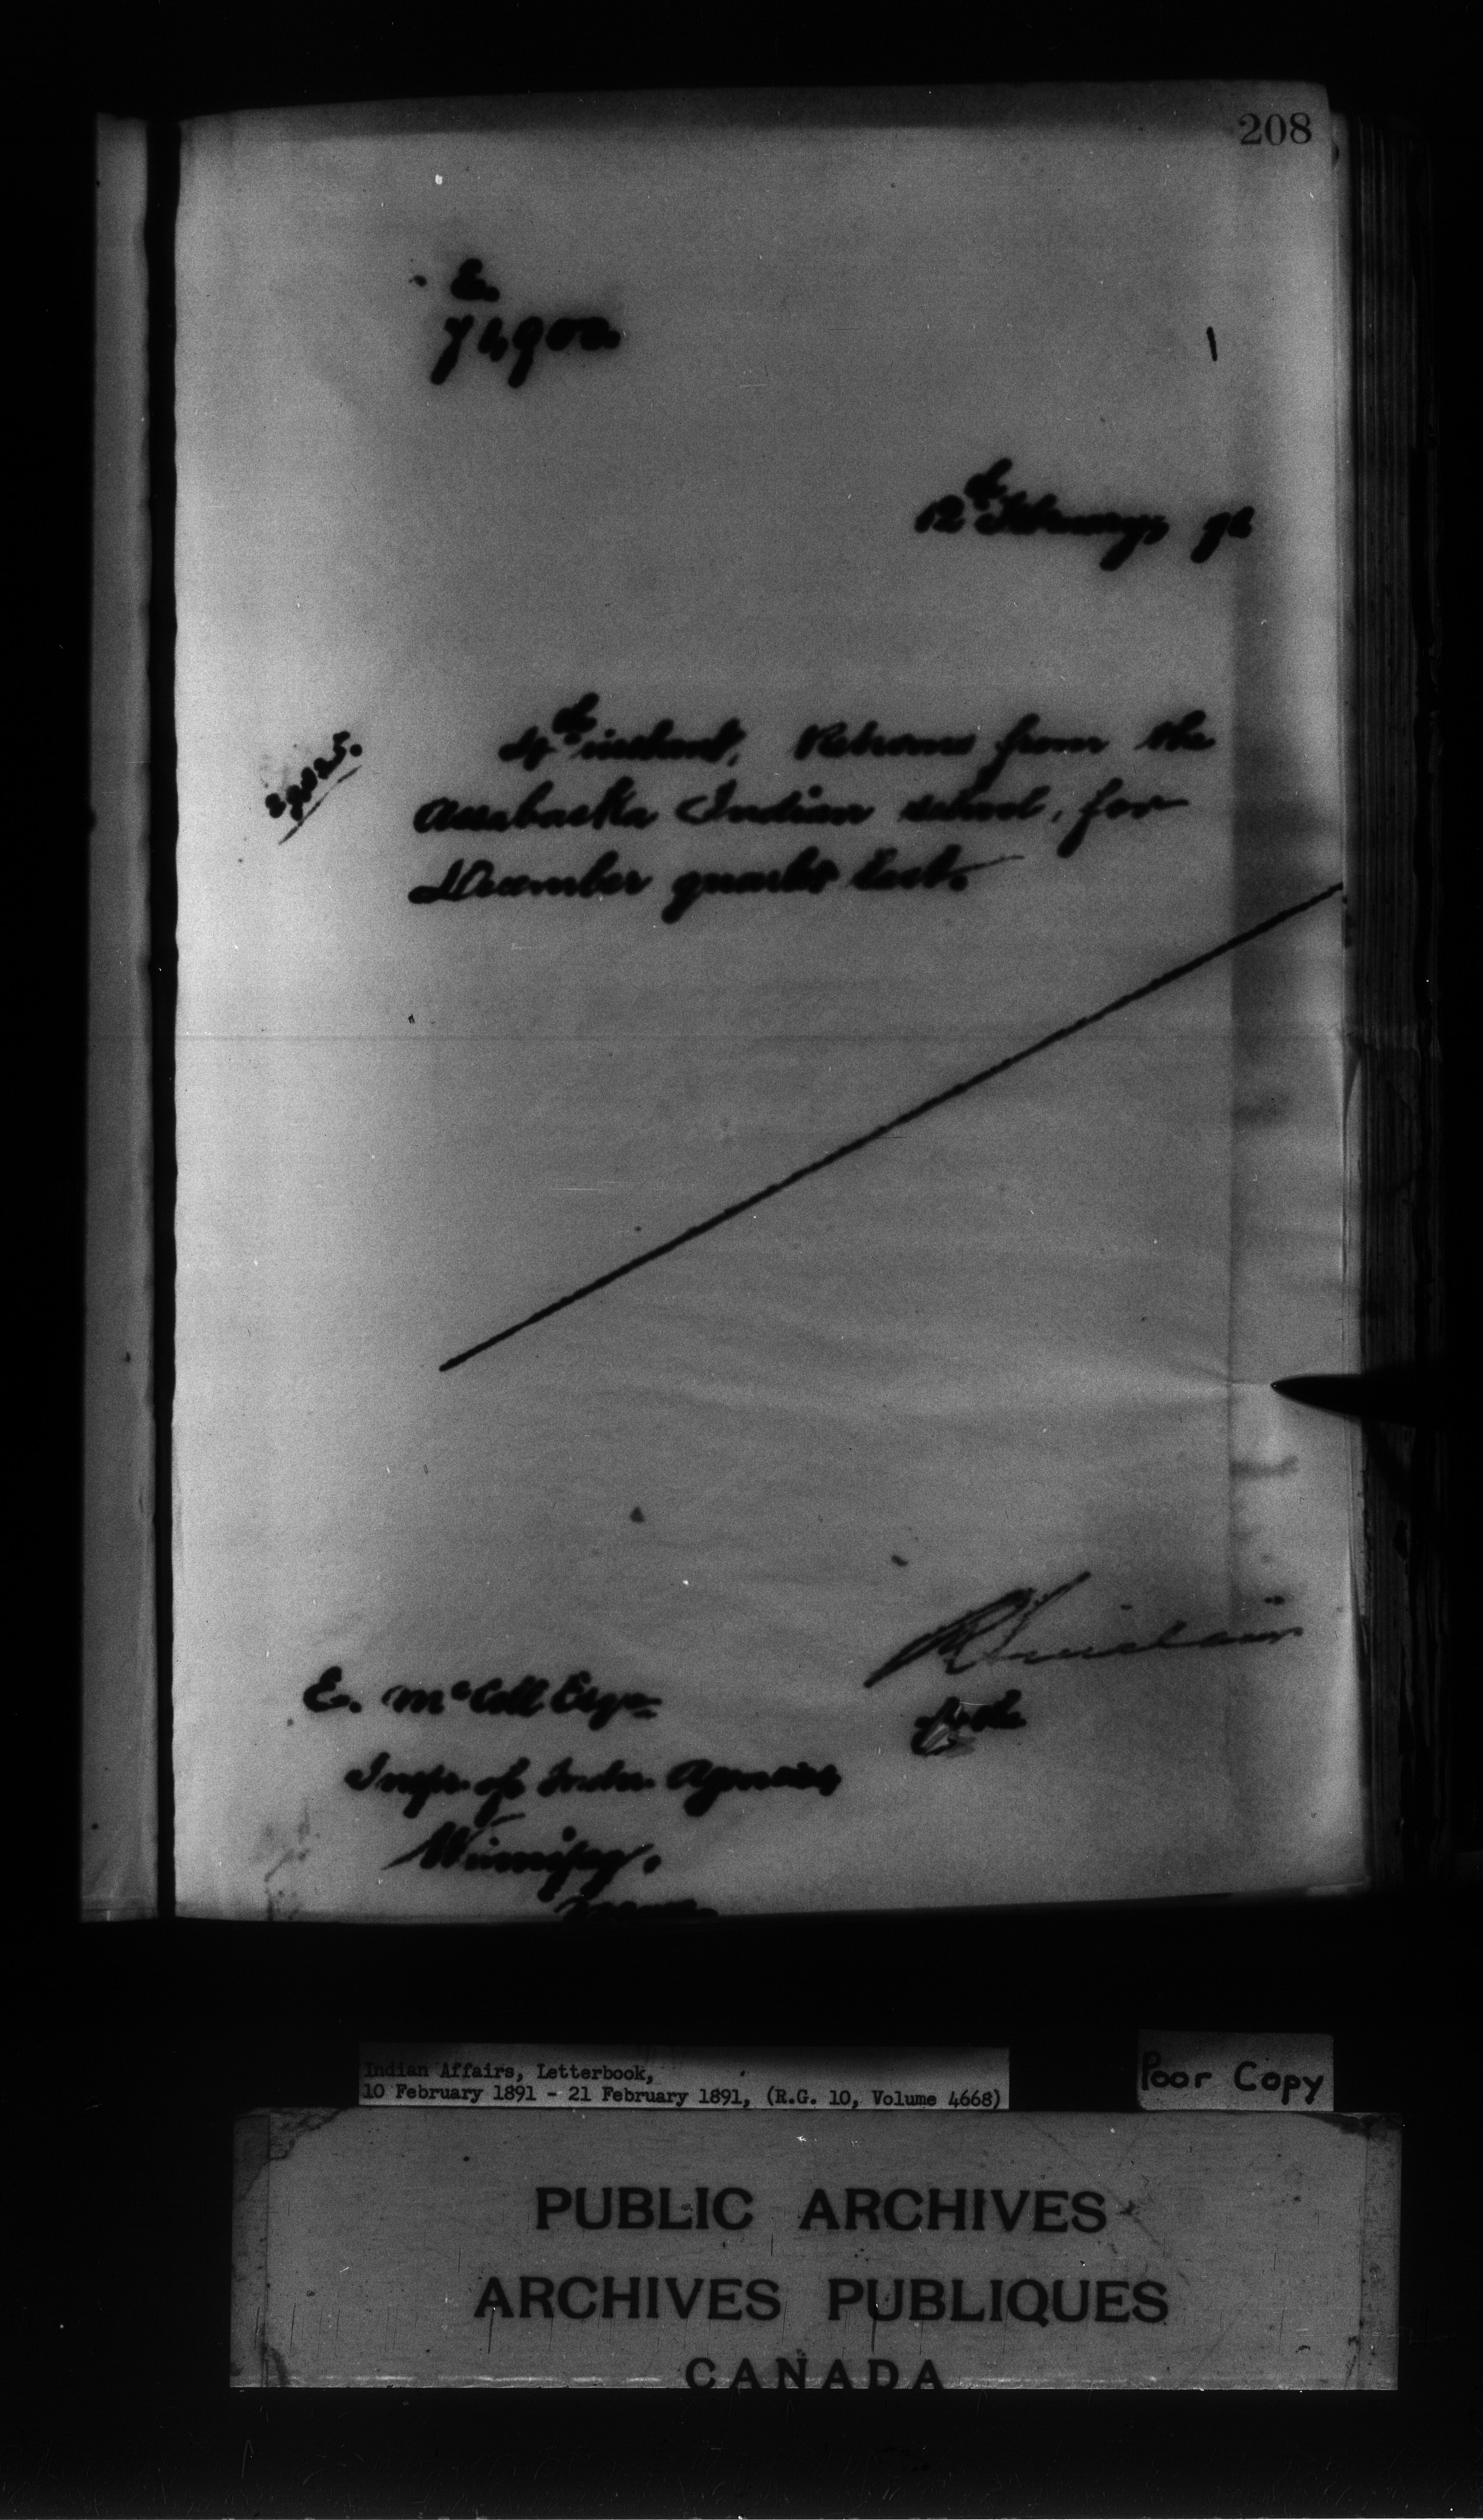 208
E.
12th February, 91
4th instant, Returns from the
Assabaska Indian school, for
December quarter last.
R Sinclair
E. McColl Esqre
Inspr. of Indn. Agencies
Winnipeg.
Indian Affairs, Letterbook,
10 February 1891 - 21 February 1891, (R.G. 10, Volume 4668)
Poor Copy
PUBLIC ARCHIVES
ARCHIVES PUBLIQUES
CANADA